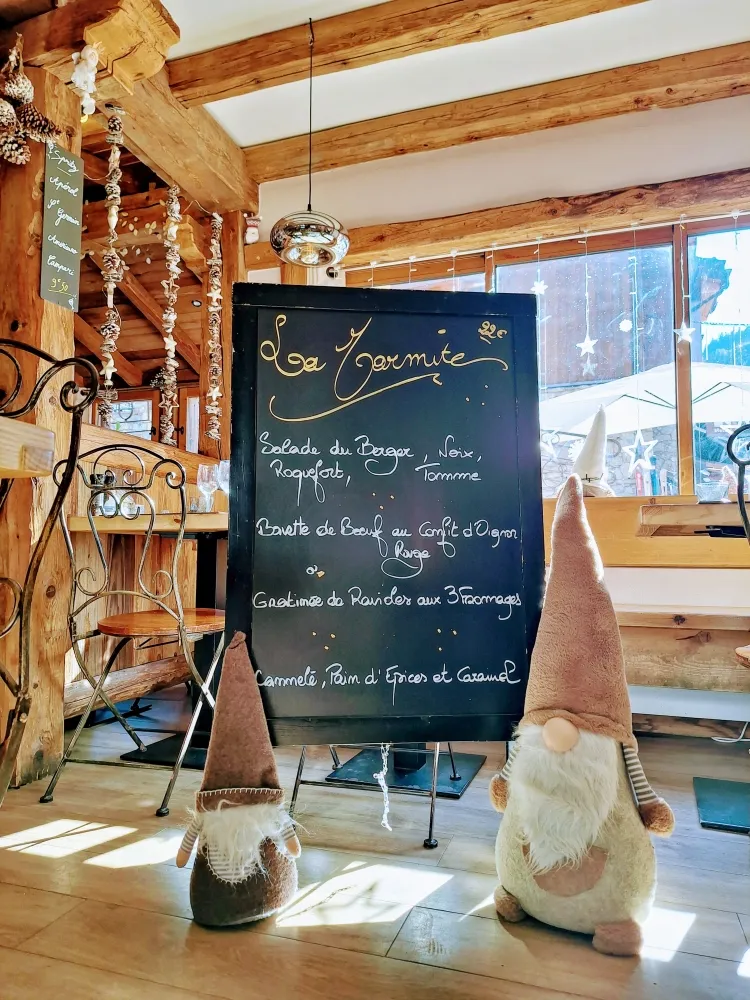 Spritz
Apérol
St Germain
Amaricano
Campari
9€50
La Marmite
22€
Salade du Berger, Noix,
Roquefort, Tomme
Bavette de Boeuf au Confit d'Oignon
Rouge
ou
Gratinée de Ravioles aux 3 Fromages
Cannelé, Pain d'Epices et Caramel